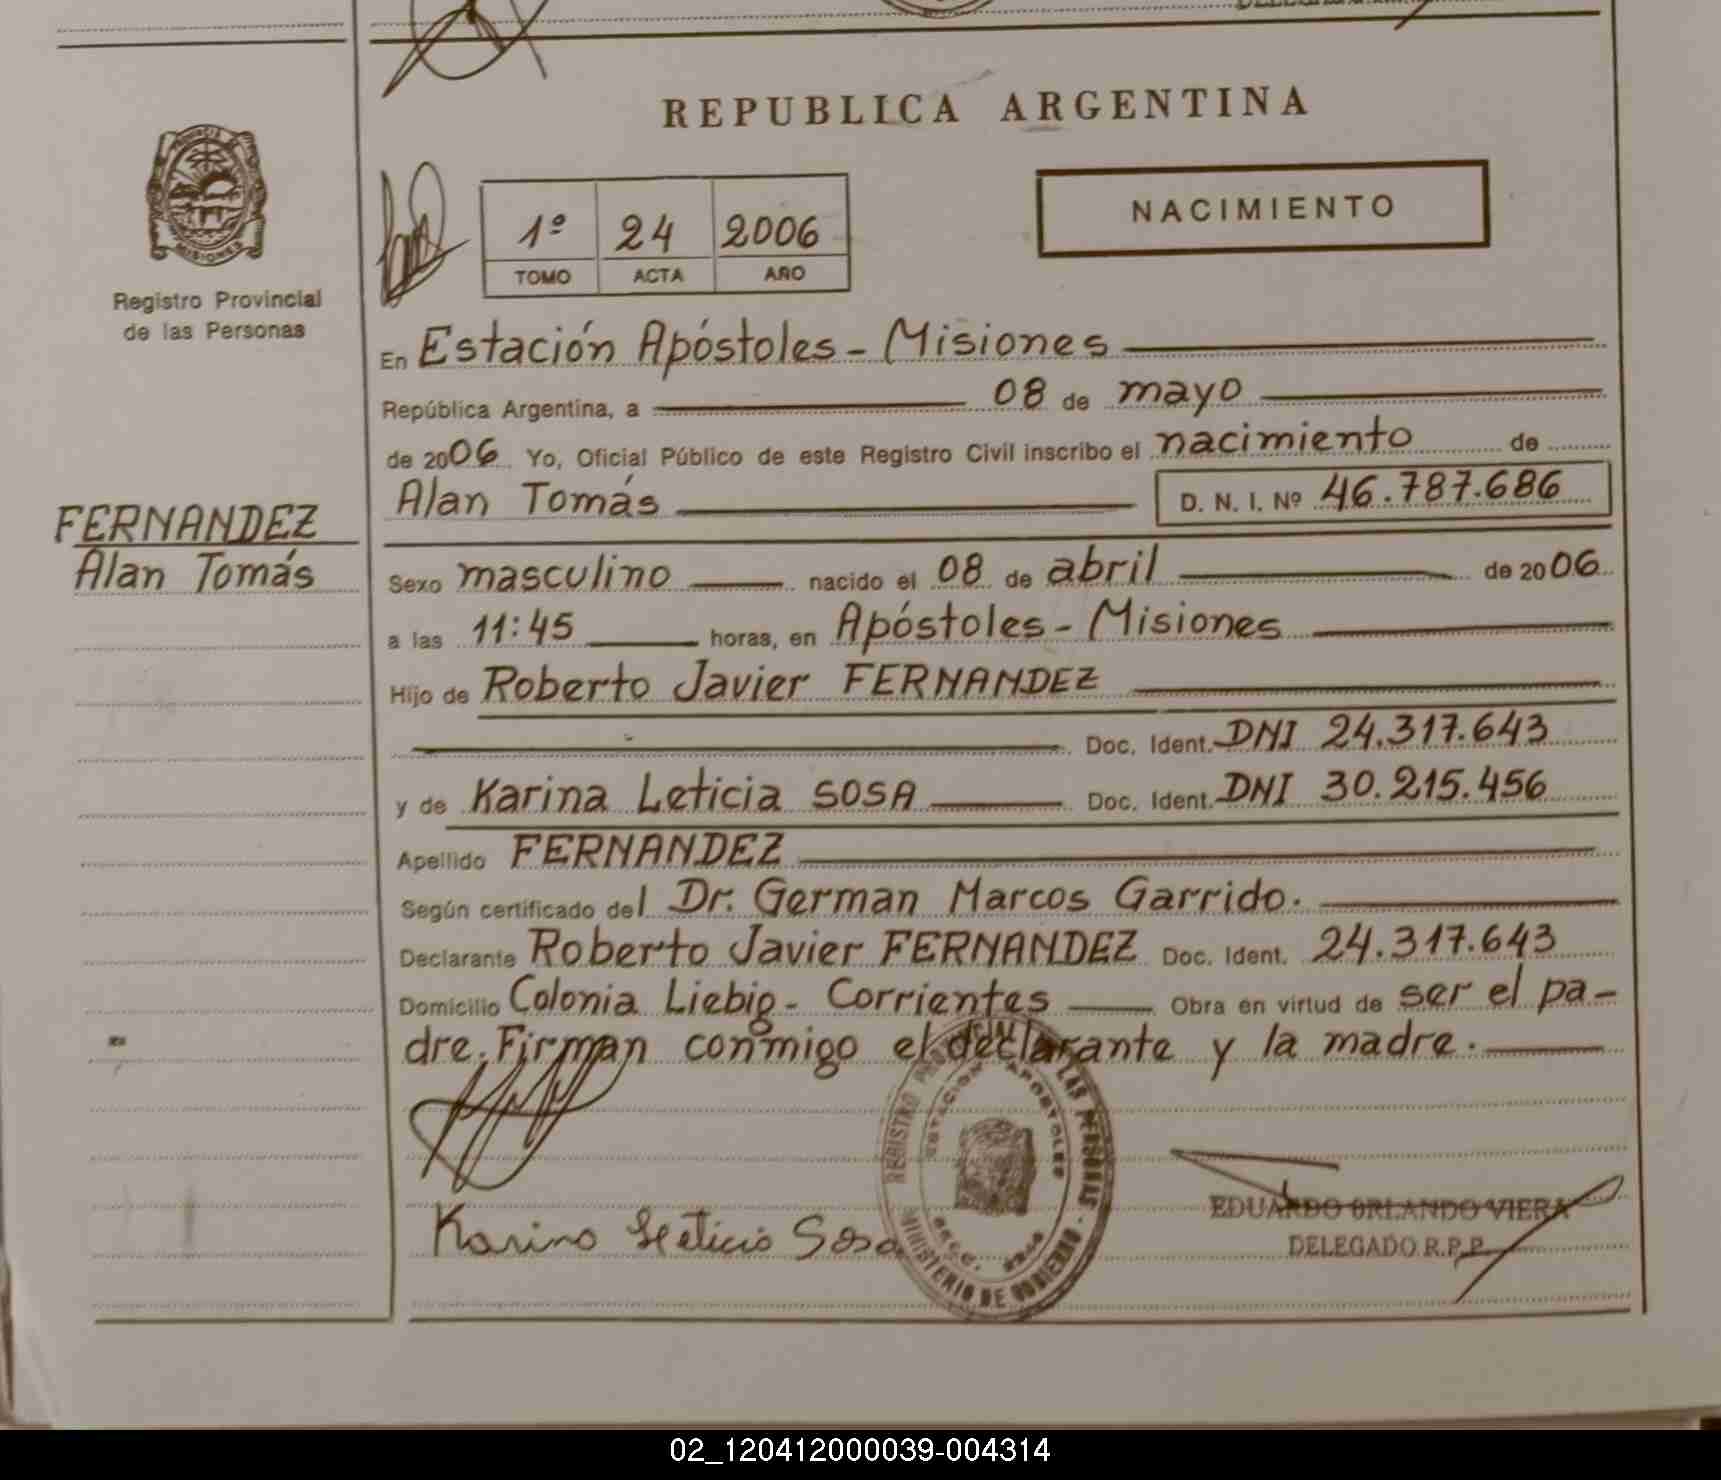 REPUBLICA ARGENTINA
PROVINCIA
MISIONES
Registro Provincial
de las Personas
1º 24 2006
TOMO ACTA AÑO
NACIMIENTO
En Estación Apóstoles - Misiones
República Argentina, a 08 de mayo
de 2006 Yo, Oficial Público de este Registro Civil inscribo el nacimiento de
Alan Tomás D. N. I. Nº 46.787.686
FERNANDEZ
Alan Tomás
Sexo masculino nacido el 08 de abril de 2006
a las 11:45 horas, en Apóstoles - Misiones
Hijo de Roberto Javier FERNANDEZ
Doc. Ident. DNI 24.317.643
y de Karina Leticia SOSA Doc. Ident. DNI 30.215.456
Apellido FERNANDEZ
Según certificado del Dr. German Marcos Garrido.
Declarante Roberto Javier FERNANDEZ Doc. Ident. 24.317.643
Domicilio Colonia Liebig - Corrientes Obra en virtud de ser el pa-
dre. Firman conmigo el declarante y la madre.
REGISTRO PROVINCIAL DE LAS PERSONAS
ESTACION APOSTOLES
MINISTERIO DE GOBIERNO
Karina Leticia Sosa
EDUARDO ORLANDO VIERA
DELEGADO R.P.P.
02_120412000039-004314